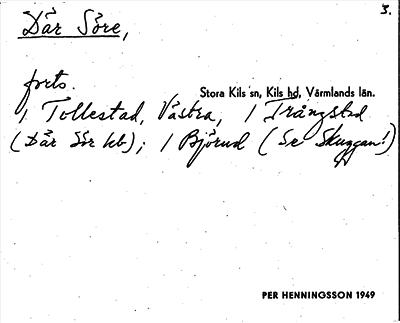 3.
Där Söre,
forts.
Stora Kils sn, Kils hd, Värmlands län.
/ Tollestad, Västra, / Trångstad
(Där Sör kb); / Björud (Se Skuggan!)
PER HENNINGSSON 1949